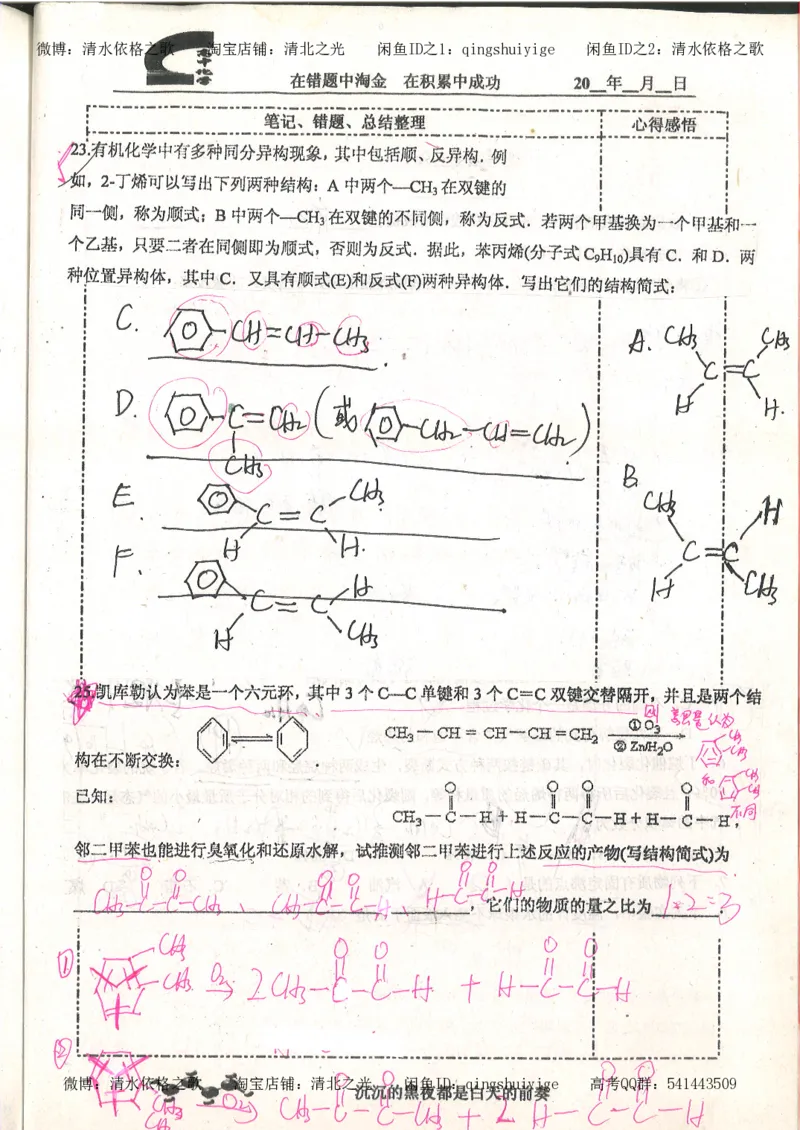 微博：清水依格之歌 淘宝店铺：清北之光 闲鱼ID之1：qingshuiyige 闲鱼ID之2：清水依格之歌
在错题中淘金 在积累中成功 20__年__月__日
笔记、错题、总结整理 心得感悟
23.有机化学中有多种同分异构现象，其中包括顺、反异构．例
如，2-丁烯可以写出下列两种结构：A 中两个—CH₃在双键的
同一侧，称为顺式；B 中两个—CH₃在双键的不同侧，称为反式．若两个甲基换为一个甲基和一
个乙基，只要二者在同侧即为顺式，否则为反式．据此，苯丙烯(分子式 C₉H₁₀)具有 C．和 D．两
种位置异构体，其中 C．又具有顺式(E)和反式(F)两种异构体．写出它们的结构简式：
C. CH=CH-CH₃
A. CH₃ CH₃
C=C
H H.
D. C=CH₂ (或 CH₂-CH=CH₂)
CH₃
B
CH₃ H
C=C
H CH₃
E. C=C CH₃
H H.
F. C=C H
H CH₃
25.凯库勒认为苯是一个六元环，其中 3 个 C—C 单键和 3 个 C=C 双键交替隔开，并且是两个结
构在不断交换：
CH₃—CH=CH—CH=CH₂ ①O₃ ②Zn/H₂O
因 认为
CH₃
CH₃
和 CH₃
CH₃
不同
已知：
O O O O
CH₃—C—H+H—C—C—H+H—C—H，
邻二甲苯也能进行臭氧化和还原水解，试推测邻二甲苯进行上述反应的产物(写结构简式)为
O O O O O O
CH₃-C-C-CH₃、CH₃-C-C-H、H-C-C-H，它们的物质的量之比为 1:2=3
① CH₃
CH₃ O₃ → 2CH₃-C-C-H + H-C-C-H
O O O O
②
微博：清水依格之歌 淘宝店铺：清北之光 闲鱼ID：qingshuiyige 高考QQ群：541443509
沉沉的黑夜都是白天的前奏
CH₃
CH₃ O₃ CH₃-C-C-CH₃ + 2 H-C-C-H